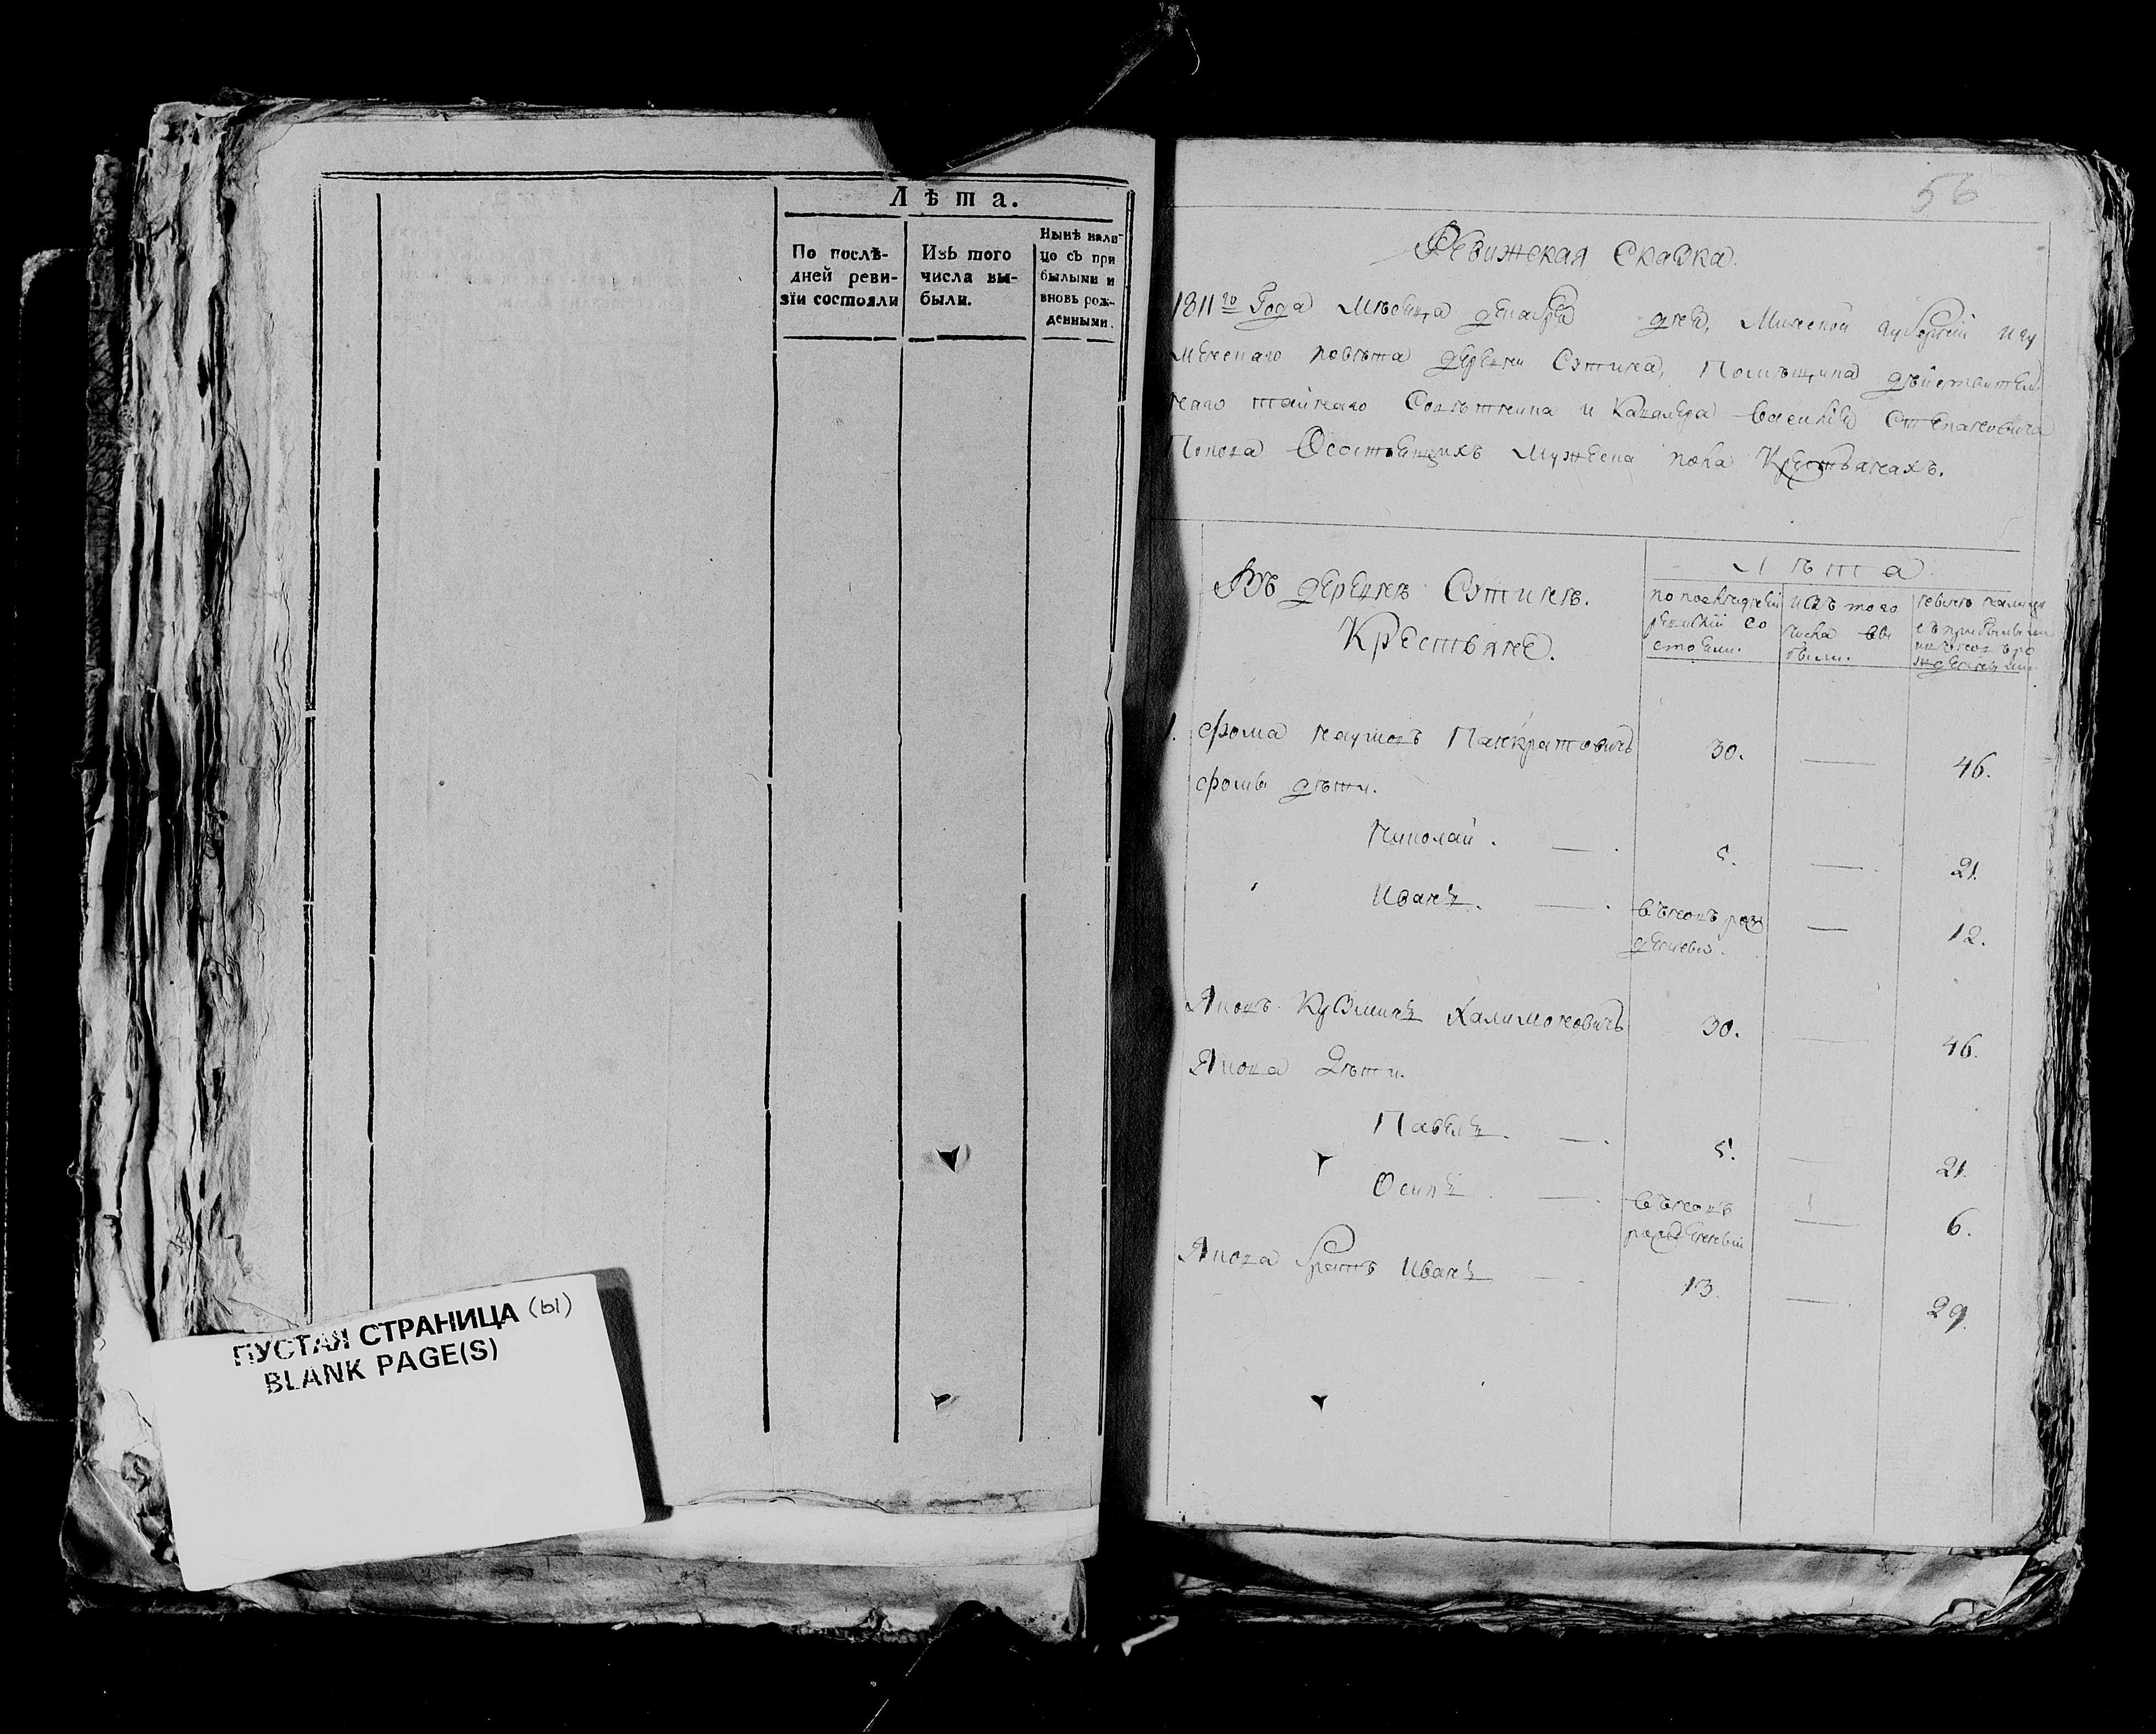 Лѣта.
По послѣ-
дней реви-
зіи состояли
Изъ того
числа вы-
были.
Нынѣ нали-
цо съ при
былыми и
вновь рож-
денными.
ПУСТАЯ СТРАНИЦА (ы)
BLANK PAGE(S)
56
Ревижская Сказка.
1811го Года Мѣсяца декабря дня, Минской губерній Игу
менскаго повѣта деревни Сэтика, Помѣщика дѣйствител
наго тайнаго Совѣтника и Кавалера василія Степановича
Попова Осостоящихъ мужеска пола Крестьянахъ.
Въ деревнѣ Сэтикѣ.
Крестьяне.
Лѣта
по последней
ревизіи со
стояли.
изъ того
числа вы
были.
нынѣ налицо
съ прибылыми
и вновь ро
жденными.
1. Фома наумовъ Панкратовичъ 30. — 46.
Фомы дѣти.
Николай. — . 5. — 21.
Иванъ. — . вновь рож — 12.
денный.
Яковъ Кузминъ Халимоновичъ 30. — 46.
Якова Дѣти.
Павелъ. — . 5. — 21.
Осипъ. — . вновь — 6.
рожденный
Якова братъ Иванъ — 13. — . 29.